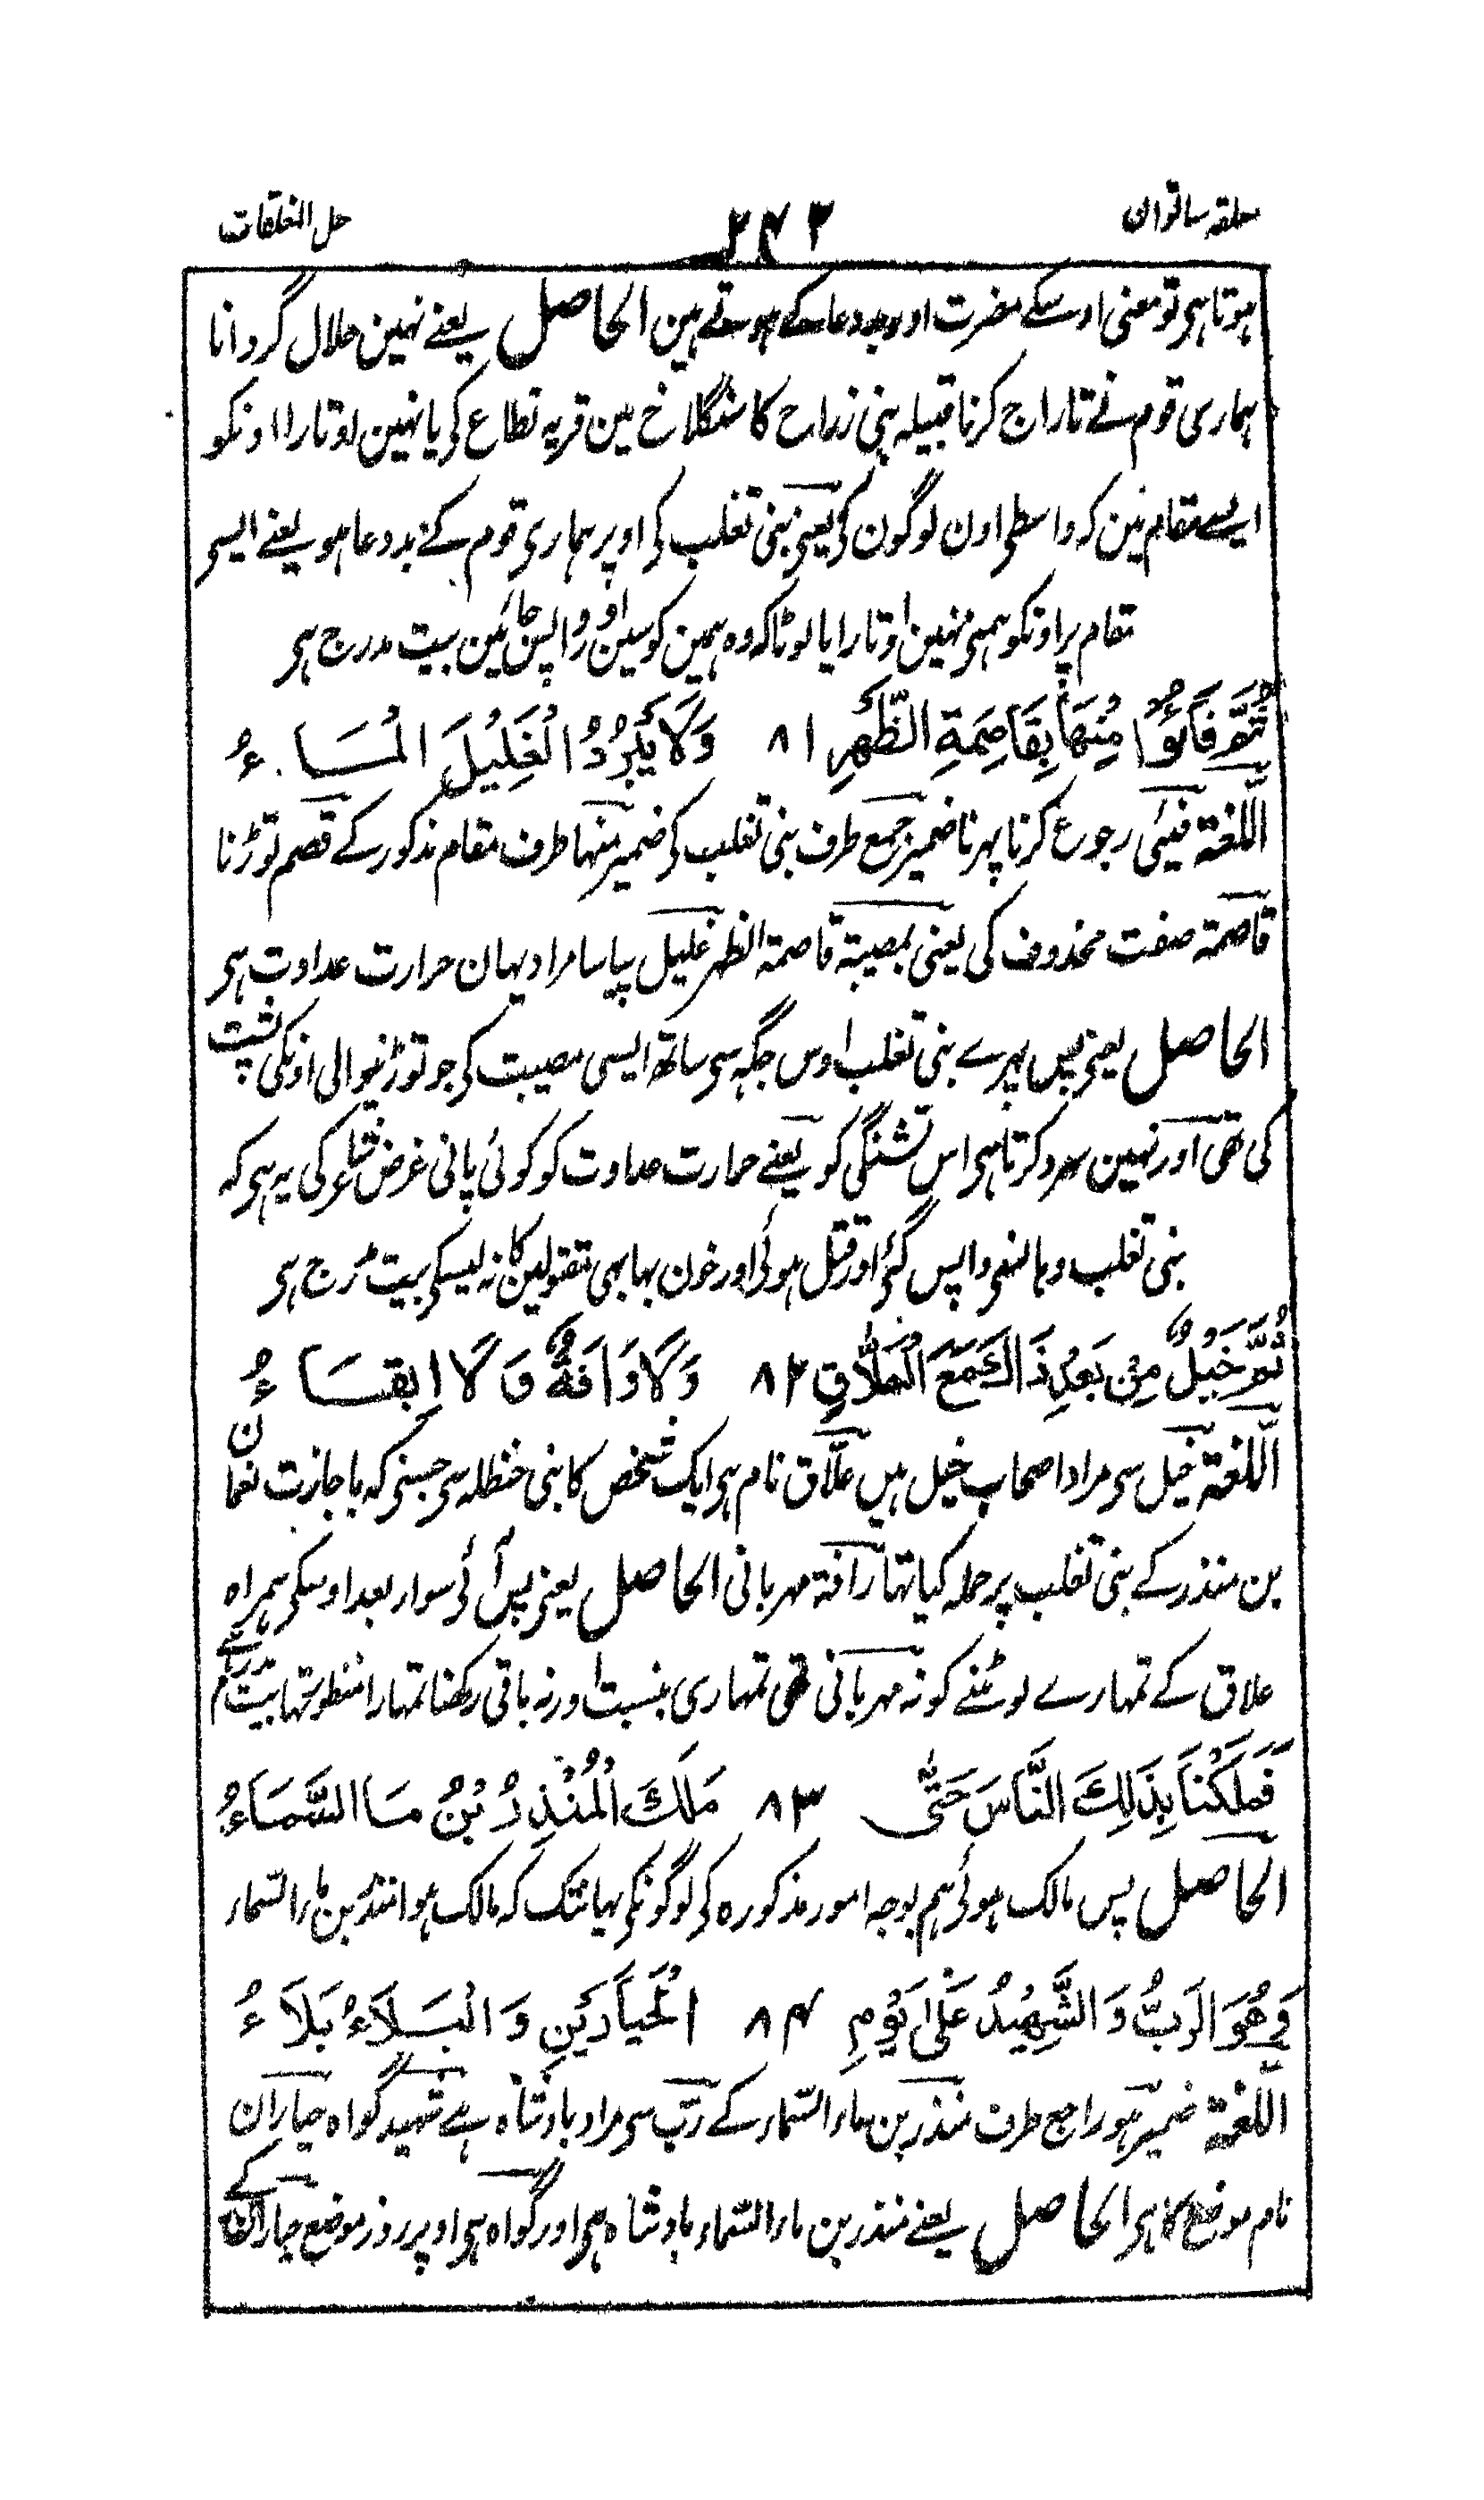 معلقہ ساتوان ۲۴۲ حل المغلقات
ہوتا ہی تو معنی اوسکے مضرت اور بددعا کے ہوتے ہین الحاصل یعنے نہین حلال گردانا
ہماری قوم نے تاراج کرنا قبیلہ بنی زراح کا سنگلاخ مین قریہ نطاع کی یا نہین اوتارا اونکو
ایسے مقام مین کہ واسطی اون لوگون کی یعنی بنی تغلب کی اوپر ہماری قوم کے بددعا ہو یعنے ایسی
مقام پر اونکو ہمنی نہین اوتارا یا لوٹا کہ وہ ہمین کوسین اور واپس جائین بیت مدرج ہی
ثُمَّ فَاءُوْا مِنْهَا بِقَاصِمَةِ الظَّهْرِ ۸۱ وَلَا يَبْرُدُ الْغَلِيْلَ الْمَاءُ
اللغة فیئی رجوع کرنا پہرنا ضمیر جمع طرف بنی تغلب کی ضمیر منہا طرف مقام مذکور کے قصم توڑنا
قاصمة صفت محذوف کی یعنی بمصیبة قاصمة الظہر غلیل پیاسا مراد یہان حرارت عداوت ہی
الحاصل یعنی پس پہرے بنی تغلب اوس جگہ سی ساتھ ایسی مصیبت کی جو توڑنیوالی اونکی پشت
کی تھی اور نہین سرد کرتا ہی اس تشنگی کو یعنے حرارت عداوت کو کوئی پانی غرض شاعر کی یہ ہی کہ
بنی تغلب وہانسی واپس گئی اور قتل ہوئی اور خون بہا بھی مقتولین کا نہ لیسکی بیت مدرج ہی
ثُمَّ خَيْلٌ مِنْ بَعْدِ ذَاكَ مَعَ الْعَلَّاقِ ۸۲ وَلَا رَافَةٌ وَلَا اِبْقَاءُ
اللغة خیل سی مراد اصحاب خیل ہیں علّاق نام ہی ایک شخص کا بنی حنظلہ سی جسنی کہ باجازت نعمان
بن منذر کے بنی تغلب پر حملہ کیا تھا رافة مہربانی الحاصل یعنی پس آئی سوار بعد اوسکی ہمراہ
علاق کے تمہارے لوٹنے کو نہ مہربانی تھی تمہاری بنسبت اور نہ باقی رکھنا تمہارا منظور تھا بیت
فَمَلَكْنَا بِذَلِكَ النَّاسَ حَتَّى ۸۳ مَلَكَ الْمُنْذِرُ بْنُ مَا السَّمَاءُ
الحاصل پس مالک ہوئی ہم بوجہ امور مذکورہ کی لوگونکی یہانتک کہ مالک ہوا منذر بن ماء السّماء
وَهُوَ الرَبُّ وَالشَّهِيْدُ عَلٰى يَوْمِ ۸۴ الْحَيَارَيْنِ وَالْبَلَاءُ بَلَاءُ
اللغة ضمیر ہو راجع طرف منذر بن ماء السّماء کے ربّ سی مراد بادشاہ ہے شہید گواہ حیاران
نام موضع کا ہی الحاصل یعنے منذر بن ماء السّماء بادشاہ ہی اور گواہ ہی اوپر روز موضع حیاران کے